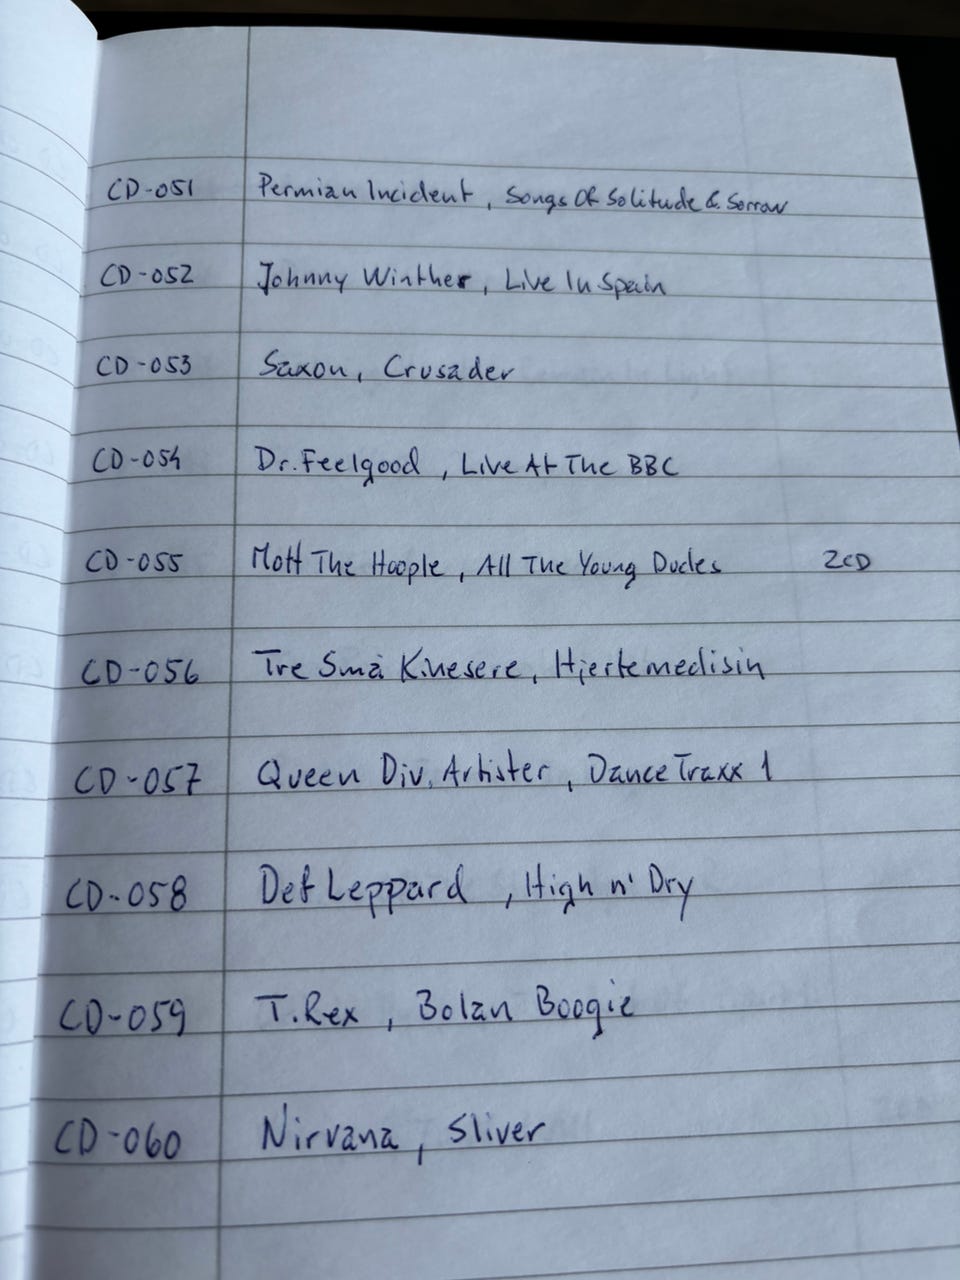 CD-051 Permian Incident, Songs Of Solitude & Sorrow
CD-052 Johnny Winther, Live In Spain
CD-053 Saxon, Crusader
CD-054 Dr. Feelgood, Live At The BBC
CD-055 Mott The Hoople, All The Young Dudes 2CD
CD-056 Tre Små Kinesere, Hjertemedisin
CD-057 Queen Div. Artister, Dance Traxx 1
CD-058 Def Leppard, High n' Dry
CD-059 T.Rex, Bolan Boogie
CD-060 Nirvana, Sliver